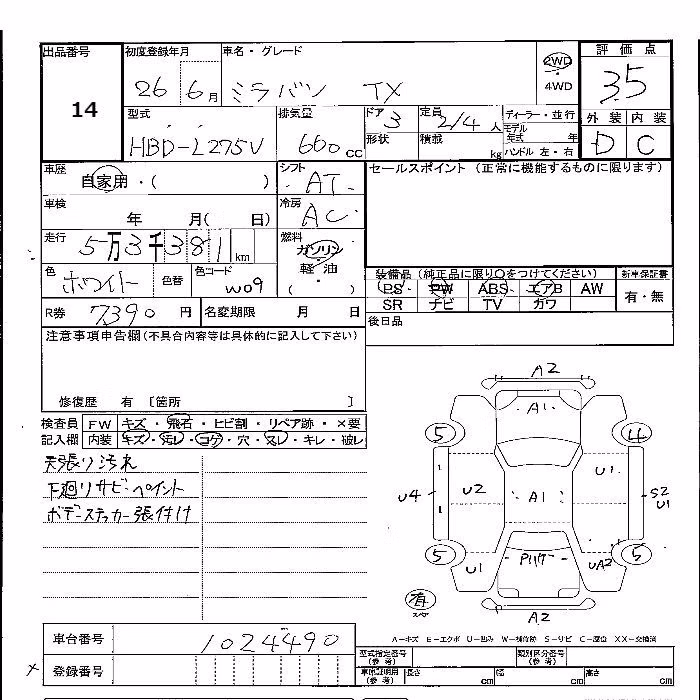 出品番号 初度登録年月 車名・グレード 2WD 評価点
14 26 6月 ミラバン TX 4WD 3.5
型式 排気量 ドア 3 定員 2/4人 ディーラー・並行 外装 内装
HBD-L275V 660cc 形状 積載 kg モデル年式 年 D C
ハンドル 左・右
車歴 自家用・( ) シフト AT セールスポイント(正常に機能するものに限ります)
車検 年 月( 日) 冷房 AC
走行 5万3千381km 燃料 ガソリン
軽・油
( )
色 ホワイト 色替 色コード W09 装備品(純正品に限り○をつけてください) 新車保証書
PS PW ABS エアB AW 有・無
SR ナビ TV ガワ
R券 7390円 名変期限 月 日 後日品
注意事項申告欄(不具合内容等は具体的に記入して下さい)
修復歴 有 〔箇所 〕
検査員 FW キズ・飛石・ヒビ割・リペア跡・×要
記入欄 内装 キズ・汚レ・コゲ・穴・スレ・キレ・破レ
天張り汚れ
下廻りサビ・ペイント
ボデーステッカー張付け
A2
A1
5 4
U1
U4 U2 A1 S2
U1
5 5
U1 UA2
有
A2
A-キズ E-エクボ U-凹み W-補修跡 S-サビ C-腐蝕 XX-交換済
車台番号 1024490
型式指定番号(参考) 類別区分番号(参考)
登録番号 車庫証明用(参考) 長さ cm 幅 cm 高さ cm